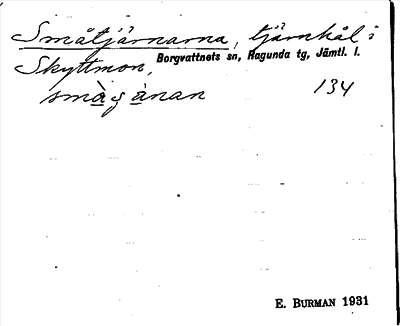 Småtjärnarna, tjärnhål i
Skyttmon, Borgvattnets sn, Ragunda tg, Jämtl. l.
småg ànan 134
E. BURMAN 1931